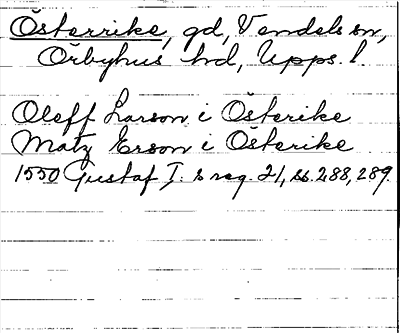 Österrike, gd, Vendels sn,
Örbyhus hd, Upps. l.
Oleff Larson i Österike
Matz Erson i Österike
1550 Gustaf I:s reg. 21, ss. 288, 289.